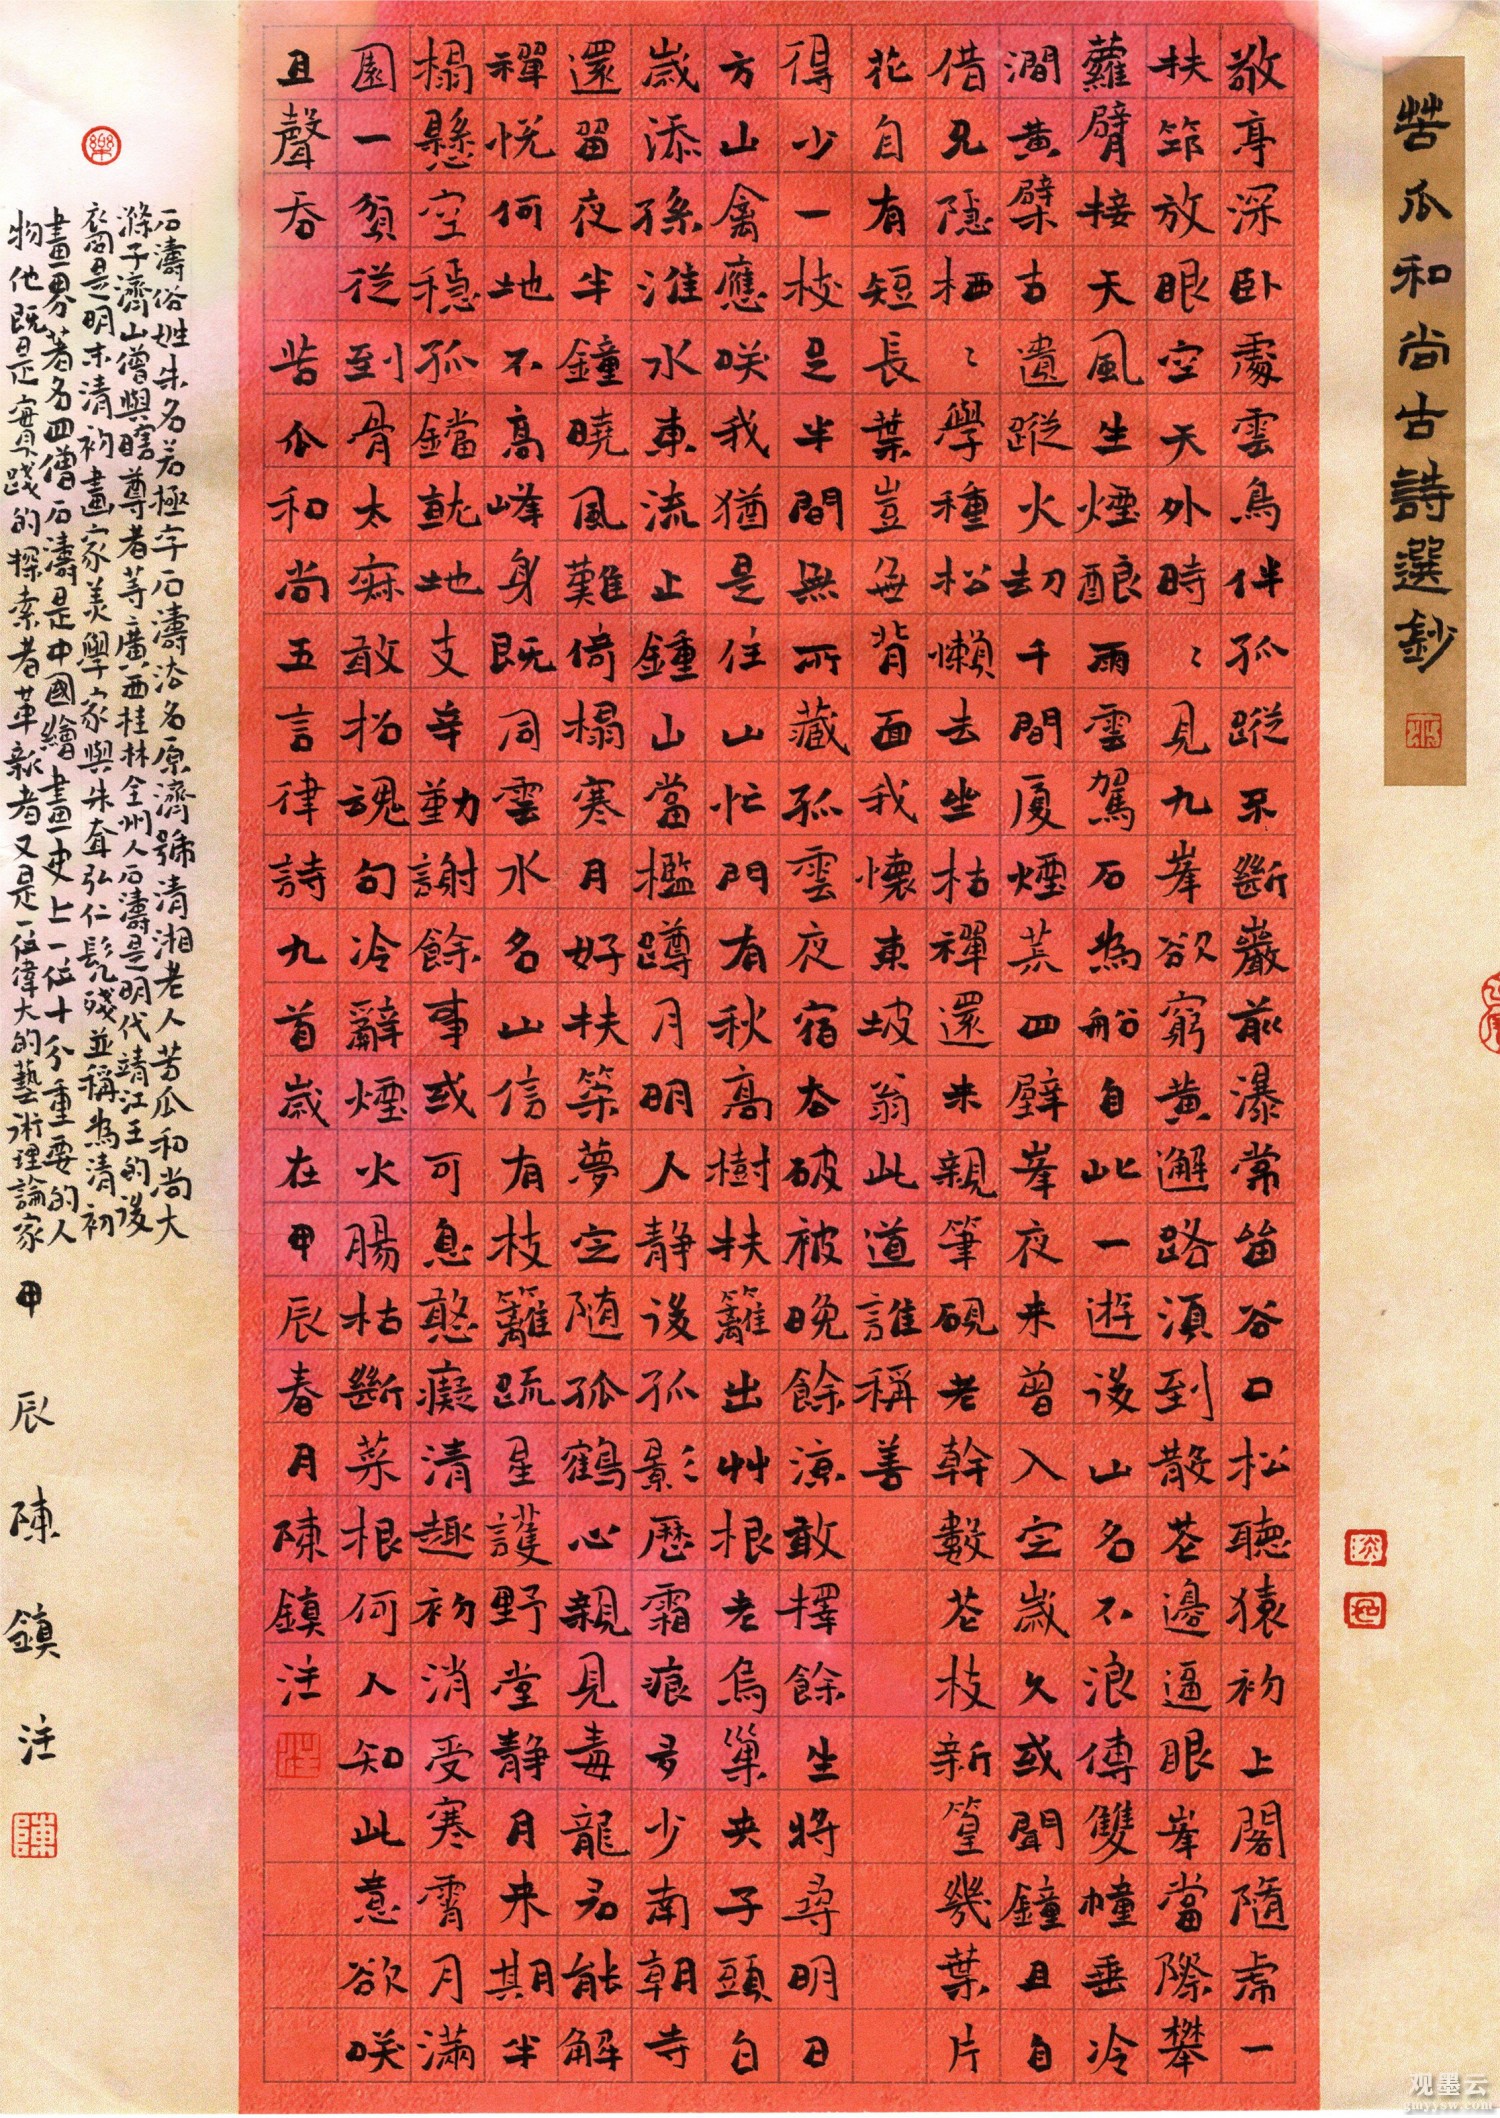 苦瓜和尚古詩選鈔
敬亭深卧處雲鳥伴孤蹤不斷巖前瀑常畄谷口松聽猿初上閣隨虎一
扶筇放眼空天外時〻見九峯欲窮黄邂路須到散苍邊逼眼峯當際攀
蘿臂接天風生煙釀雨雲駕石為船自此一遊後山名不浪傳雙幢垂冷
澗黄檗古遺蹤火刧千間厦煙荒四壁峯夜来曾入定歲久或聞鐘且自
借兄隱栖〻學種松懶去坐枯禪還来親筆硯老幹數苍枝新篁幾葉片
花自有短長葉豈無背面我懷東坡翁此道誰稱善
得少一枝足半間無所藏孤雲夜宿杏破被晚餘凉敢擇餘生将尋明日
方山禽應咲我猶是住山忙門有秋高樹扶籬出艸根老烏巢夬子頭白
歲添孫淮水東流止鍾山當檻蹲月明人静後孤影歷霜痕另少南朝寺
還留夜半鐘曉風難倚榻寒月好扶筇夢定随孤鶴心親見毒龍君能解
禪悦何地不高峰身既同雲水名山信有枝籬疏星護野堂静月来期半
榻懸空穩孤鐺就地支辛勤謝餘事或可息憨癡清趣初消受寒霄月滿
園一貧從到骨太瘷敢招魂句冷辭煙火腸枯斷菜根何人知此意欲咲
且聲吞 苦瓜和尚五言律詩九首歲在甲辰春月陳鎮注
石濤俗姓朱名若極字石濤法名原濟號清湘老人苦瓜和尚大
滌子濟山僧與瞎尊者等廣西桂林全州人石濤是明代靖江王的後
裔是明末清初畫家美學家與朱耷弘仁髡殘並稱為清初
畫界著名四僧石濤是中國繪畫史上一位十分重要的人
物他既是實踐的探索者革新者又是一位偉大的藝術理論家
甲辰陳鎮注
观墨云
gmyysw.com